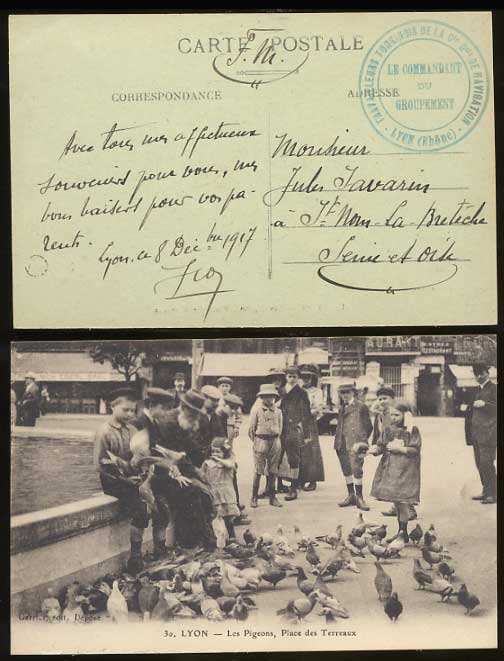 CARTE POSTALE
F. M.
CORRESPONDANCE
ADRESSE
TRAVAILLEURS TONKINOIS DE LA Cie Gle DE NAVIGATION
LE COMMANDANT
DU
GROUPEMENT
- LYON (Rhône) -
Avec tous mes affectueux
souvenirs pour vous, mes
bons baisers pour vos pa-
rents.
Lyon, ce 8 Décbre 1917
Monsieur
Jules Tavarin
à St Nom-La-Bretèche
Seine et Oise
RESTAURANT
édit. Déposé
30. LYON — Les Pigeons, Place des Terreaux